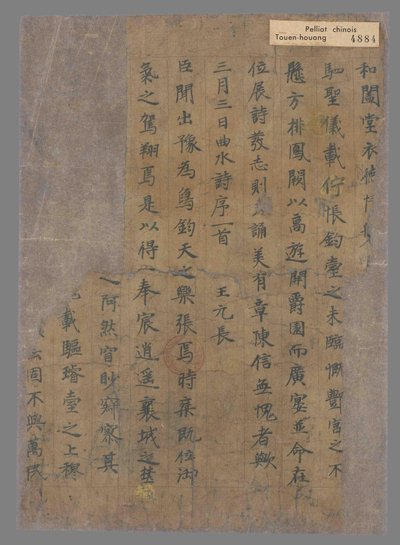 Pelliot chinois
Touen-houang 4884
和闔堂衣德
馳聖儀載佇帳鈞臺之未臨慨酆宮之不
懸方排鳳闕以高遊開爵園而廣宴並命在
位展詩發志則夫誦美有章陳信無愧者歟
三月三日曲水詩序一首 王元長
臣聞出豫為象鈞天之樂張焉時乘既位御
氣之駕翔焉是以得一奉宸逍遙襄城之
之阿然窅眇寂寥其
載驅璿臺之上穆
同不與萬民